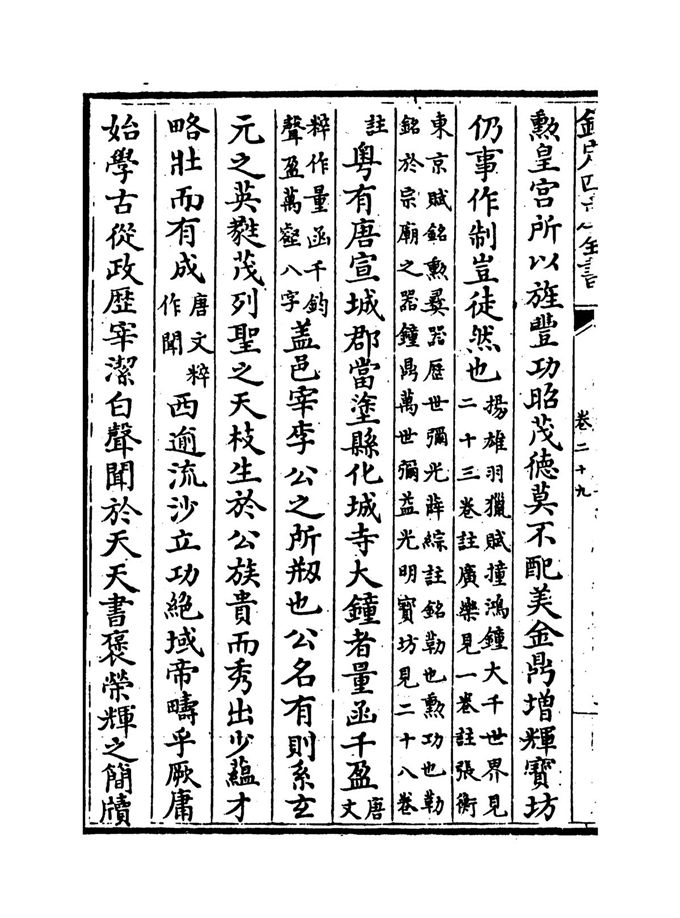 欽定四庫全書
卷二十九
勲皇宫所以旌豐功昭茂德莫不配美金鼎増輝寳坊
仍事作制豈徒然也
揚雄羽獵賦撞鴻鐘大千世界見
二十三卷註廣樂見一卷註張衡
東京賦銘勲彞器歴世彌光薛綜註銘勒也勲功也勒
銘於宗廟之器鐘鼎萬世彌益光明寳坊見二十八卷
註
粤有唐宣城郡當塗縣化城寺大鐘者量函千盈
唐文
粹作量函千鈞
聲盈萬壑八字
盖邑宰李公之所剏也公名有則系玄
元之英蕤茂列聖之天枝生於公族貴而秀出少藴才
略壯而有成
唐文粹
作聞
西逾流沙立功絶域帝疇乎厥庸
始學古從政歴宰潔白聲聞於天天書褒榮輝之簡牘